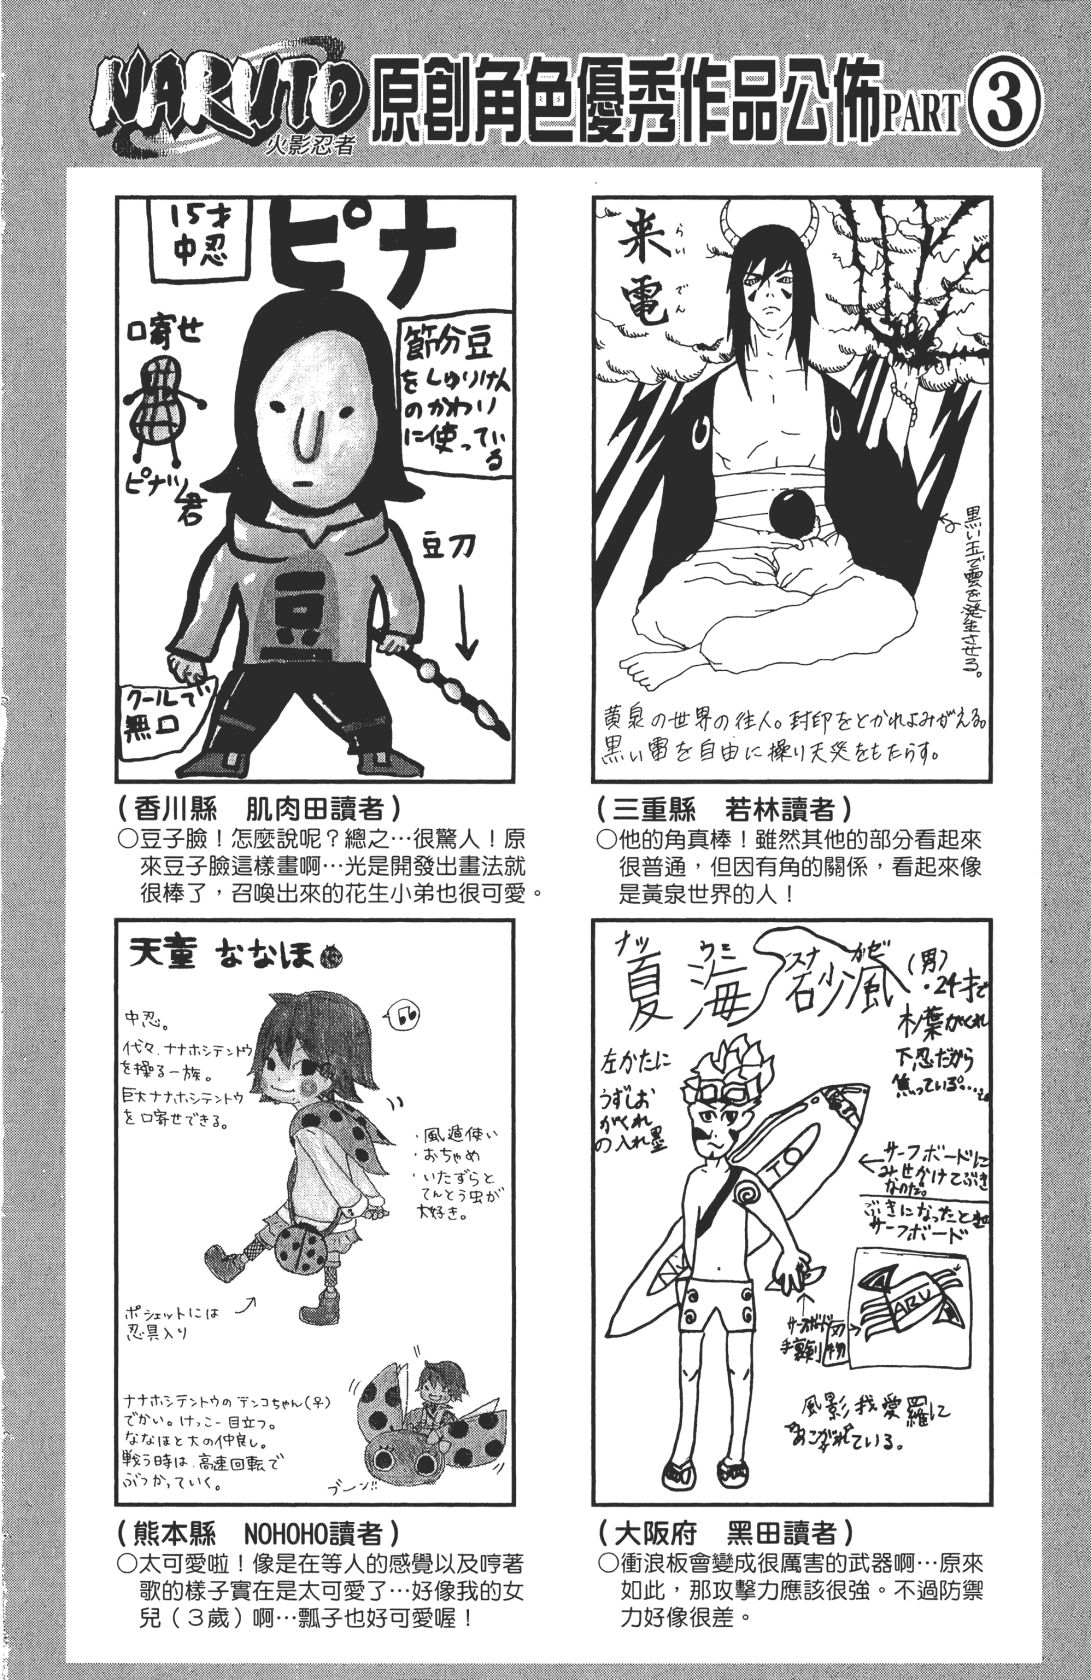 NARUTO
火影忍者
原創角色優秀作品公佈PART 3
15才
中忍
ピナ
口寄せ
ピナッツ君
節分豆
をしゅりけん
のかわり
に使ってい
る
豆刀
豆
クールで
無口
(香川縣 肌肉田讀者)
○豆子臉！怎麼說呢？總之…很驚人！原
來豆子臉這樣畫啊…光是開發出畫法就
很棒了，召喚出來的花生小弟也很可愛。
来電
らいでん
黒い玉で雲を発生させる。
黄泉の世界の住人。封印をとかれよみがえる。
黒い雷を自由に操り天災をもたらす。
(三重縣 若林讀者)
○他的角真棒！雖然其他的部分看起來
很普通，但因有角的關係，看起來像
是黃泉世界的人！
天童 ななほ
中忍。
代々、ナナホシテントウ
を操る一族。
巨大ナナホシテントウ
を口寄せできる。
・風遁使い
・おちゃめ
・いたずらと
てんとう虫が
大好き。
ポシェットには
忍具入り
ナナホシテントウのテンコちゃん(♀)
でかい。けっこー目立つ。
ななほと大の仲良し。
戦う時は、高速回転で
ぶつかっていく。
ブーン!!
(熊本縣 NOHOHO讀者)
○太可愛啦！像是在等人的感覺以及哼著
歌的樣子實在是太可愛了…好像我的女
兒（３歲）啊…瓢子也好可愛喔！
ナツ ウミ スナ カゼ
夏海砂風
(男)
・24才で
木葉がくれ
下忍だから
焦っている
左かたに
うずしお
がくれ
の入れ墨
サーフボードに
みせかけてぶき
なのだ。
ぶきになったとき
サーフボード
TO
ARU
サーフボード
手裏剣
刃物
風影我愛羅に
あこがれている。
(大阪府 黑田讀者)
○衝浪板會變成很厲害的武器啊…原來
如此，那攻擊力應該很強。不過防禦
力好像很差。